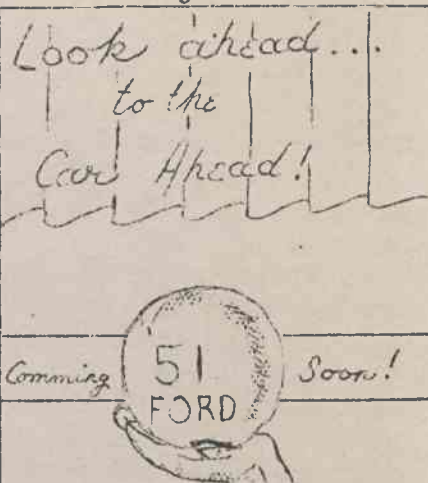 Look ahead...
to the
Car Ahead!
Comming 51 Soon!
FORD